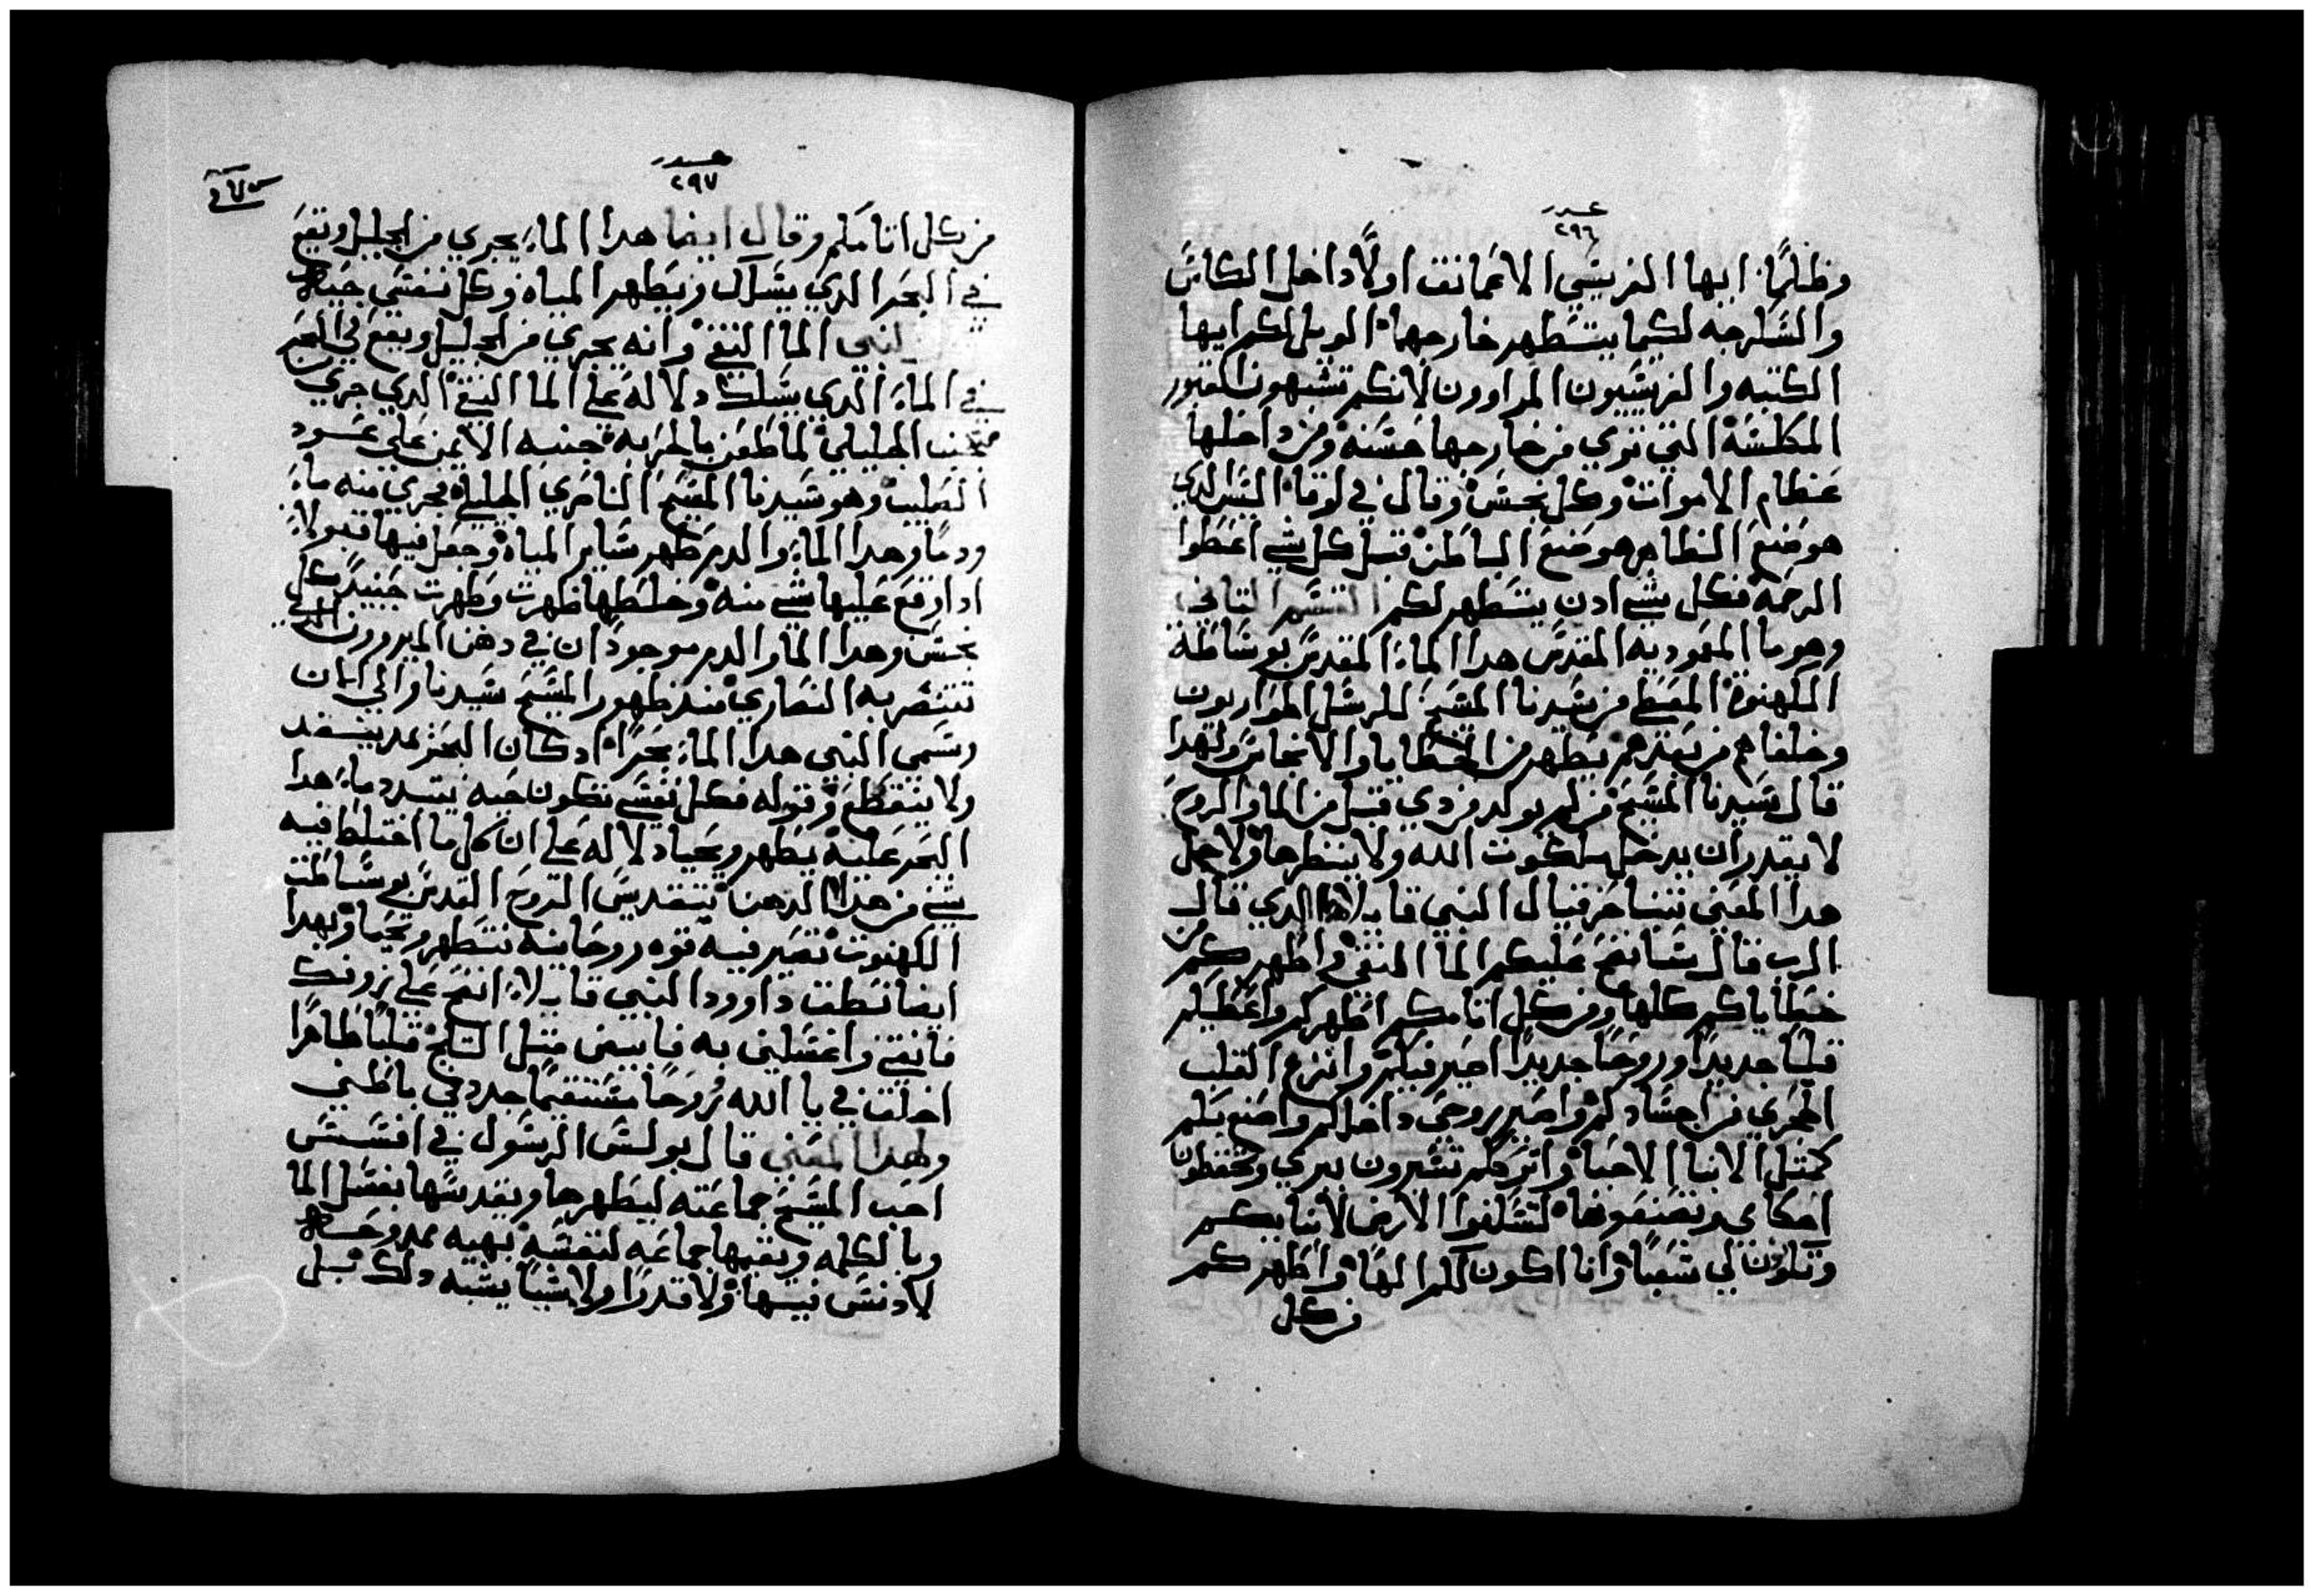 عدد
٢٩٦
وظلمًا ايها الفريسي الاعما نقى اولًا داخل الكاس
والسكرجه لكيما يتطهر خارجهما الويل لكم ايها
الكتبه والفريسيون المراوون لانكم تشبهون القبور
المكلسة التي تري من خارجها حسنه ومن داخلها
عظام الاموات وكل نجس وقال في لوقا اليس الدي
هو صنع الظاهر هو صنع الباطن قبل كل شي اعطوا
الرحمه فكل شي ادن يتطهر لكم القسم التاني
وهو ما المعموديه المقدس هدا الماء المقدس بوساطة
الكهنوة المعطي من سيدنا المسيح للرسل الحواريون
وخلفاهم من بعدهم يطهر من الخطايا والانجاس ولهدا
قال سيدنا المسيح من لم يولد من دي قبل من الما والروح
لا يقدر ان يدخل ملكوت الله ولا ينظرها ولاجل
هدا المعني تنبا حزقيال النبي قايلًا هكدي قال
الرب قال سانضح عليكم الما المنقي واطهركم من
خطاياكم كلها ومن كل اتامكم اطهركم واعطيكم
قلبًا جديدًا وروحًا جديدًا اصير فيكم وانزع القلب
الحجري من اجسادكم واصير روحي داخلكم واصنع بكم
كمتل الانبيا الاحيا واترككم تسيرون ببري وتحفظون
احكامي وتصنعونها لتسكنوا الارض لابايكم
وتكونون لي شعبًا وانا اكون لكم الهًا واطهركم
من كل
عدد
٢٩٧
من كل اتامكم وقال ايضا هدا الماء يجري من الجليل ويقع
في البحر الدي يسلك ويطهر المياه وكل نفس حياه
النبي الما النقي وانه يجري من الجليل ويقع في البحر
في الماء الدي يسلك دلاله علي الما النقي الدي جري
من جنب الجليلي لما طعن بالحربه جنبه الايمن علي عود
الصليب وهو سيدنا المسيح الناصري الجليلي فجري منه ماء
ودمًا وهدا الماء والدم طهر ساير المياه وجعل فيها قبولًا
ادا وقع عليها شي منه وخلطها طهرت وطهرت حينيدٍ كل
نجس وهدا الما والدم موجودان في دهن الميرون الدي
تتنصر به النصاري مند ظهور المسيح سيدنا والي الان
وسمي النبي هدا الماء بحرًا اد كان البحر عد ينفد
ولا ينقطع وقوله فكل نفس تكون حيه يتردد ماء هدا
البحر عليه يطهر ويحيا دلاله علي ان كل ما اختلط فيه
شي من هدا الدهن بتقديس الروح القدس بوساطت
الكهنوت تصير فيه قوه روحانيه تتطهر وتحيا وبهدا
ايضا نطق داوود النبي قايلًا انضح علي زوفك
فانقي واغسلني به فابيض متل التلج قلبًا طاهرًا
اخلق في يا الله وروحًا مستقيمًا جدد في باطني
ولهدا المعني قال بولس الرسول في افسس
احب المسيح جماعته ليطهرها ويقدسها بغسل الما
وبالكلمه ويقيمها جماعه لنفسه بهيه ممدوحه
لا دنس فيها ولا قدرًا ولا شيًا يشبه دلك بل